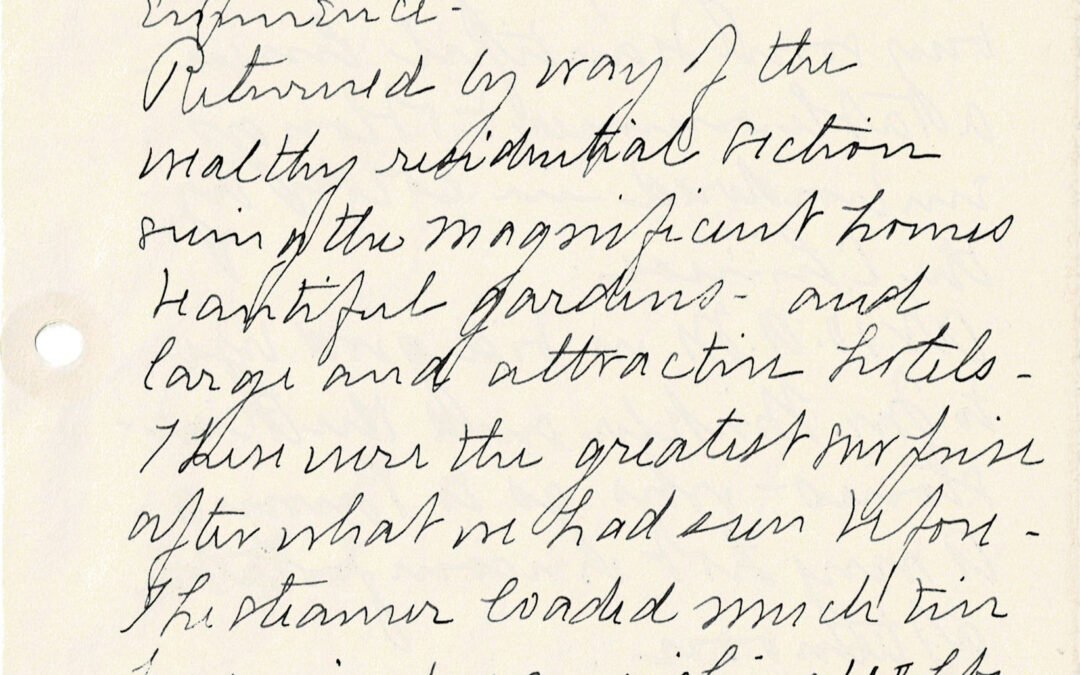 experience -
Returned by way of the
wealthy residential section
seeing the magnificent homes
beautiful gardens - and
large and attractive hotels -
These were the greatest surprise
after what we had seen before -
The steamer loaded much tin